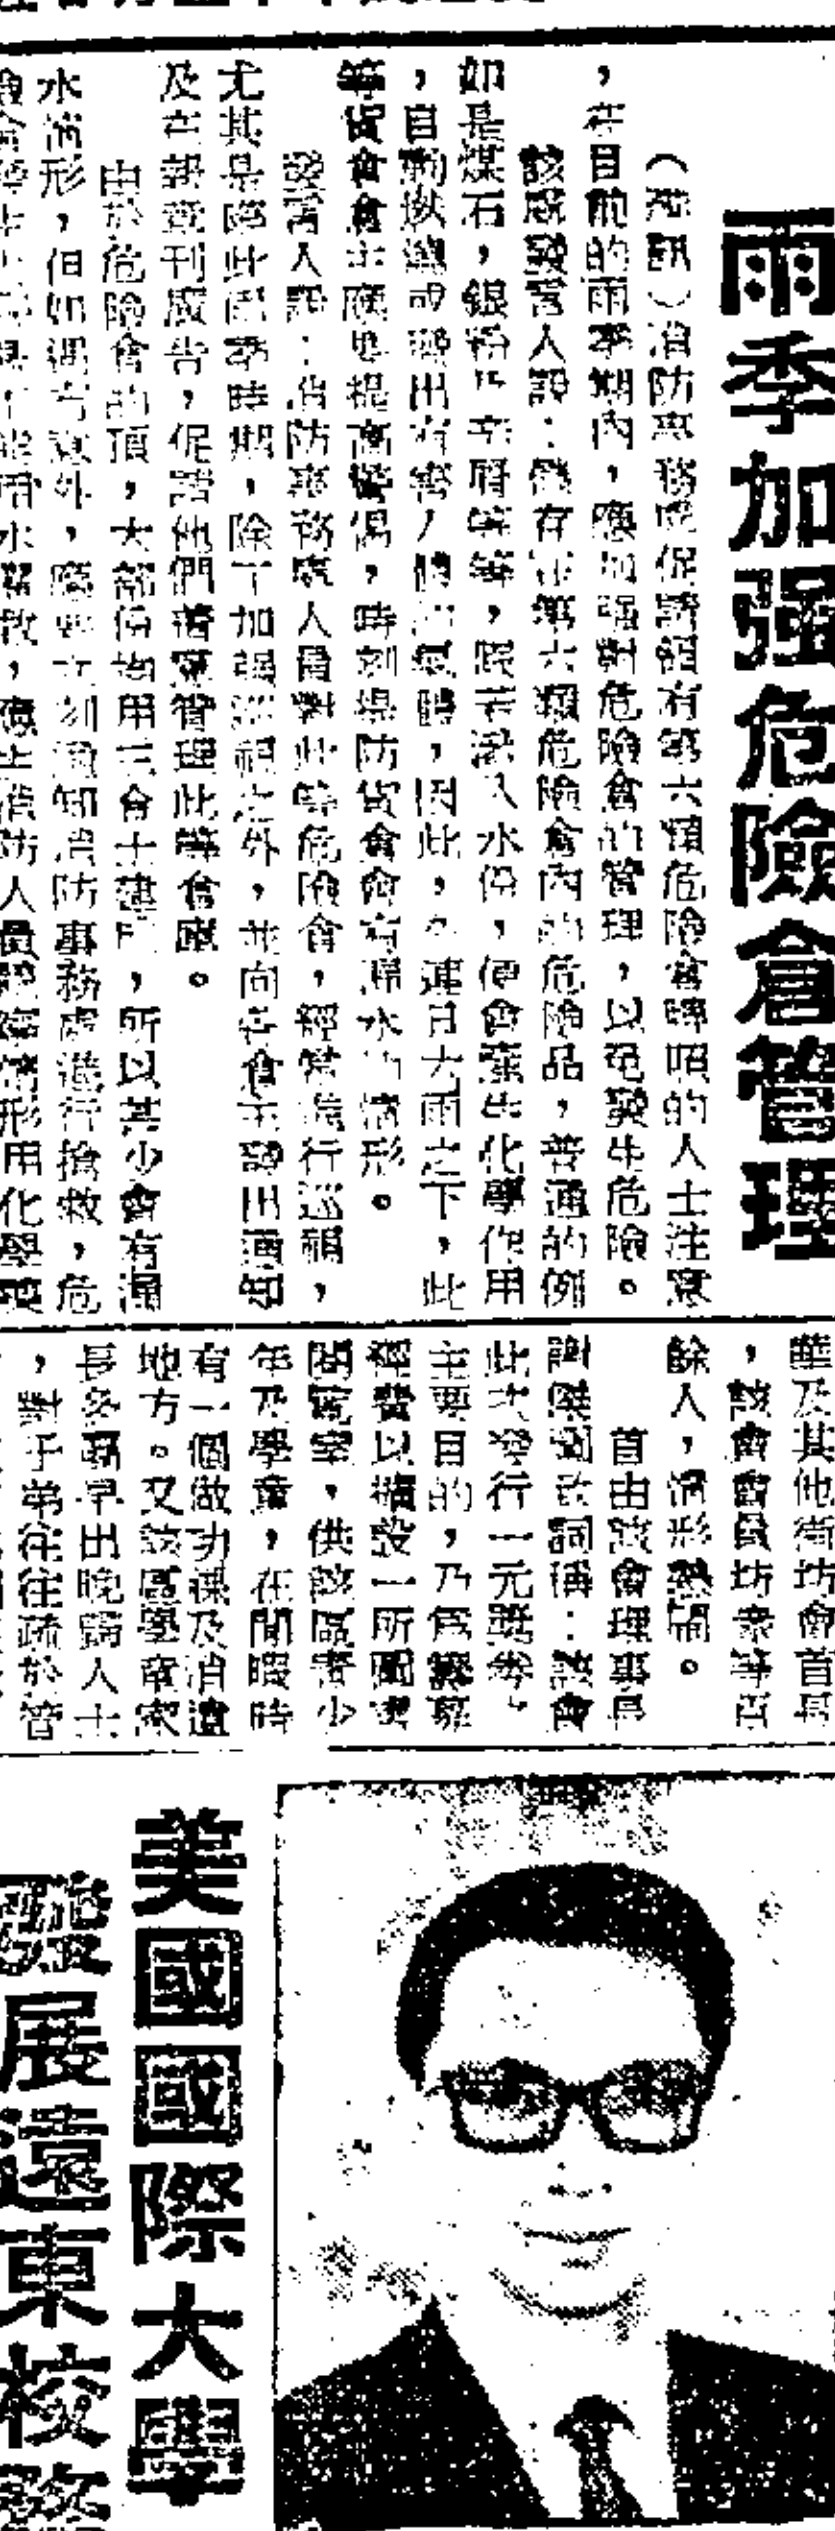 雨季加强危險倉管理
（專訊）消防事務處促請領有第六類危險倉牌照的人士注意
，在目前的雨季期內，應加强對危險倉的管理，以免發生危險。
該處發言人說：儲存在第六類危險倉內的危險品，普通的例
如是煤石，銀粉及辛屑等等，假若滲入水份，便會產生化學作用
，自動燃燒或發出有害人體的氣體，因此，在連日大雨之下，此
等貨倉倉主應要提高警惕，時刻提防貨倉會有漏水的情形。
發言人說：消防事務處人員對此等危險倉，經常進行巡視，
尤其是際此雨季時期，除了加强巡視之外，並向各倉主發出通知
及在報章刊廣告，促請他們着意管理此等倉庫。
由於危險倉的頂，大部份均用三合土建成，所以甚少會有漏
水情形，但如遇有意外，應要立刻通知消防事務處進行搶救，危
用水 救，應由消防人員 情形用化學
華及其他街坊會首長
，該會會員坊衆等百
餘人，情形熱鬧。
首由該會理事長
謝 致詞稱：該會
此次發行一元獎券，
主要目的，乃為籌募
經費以擴設一所圖書
閱覽室，供該區青少
年及學童，在閒暇時
有一個做功課及消遣
地方。又該區學童家
長多屬早出晚歸人士
，對子弟往往疏於管
美國國際大學
發展遠東校務